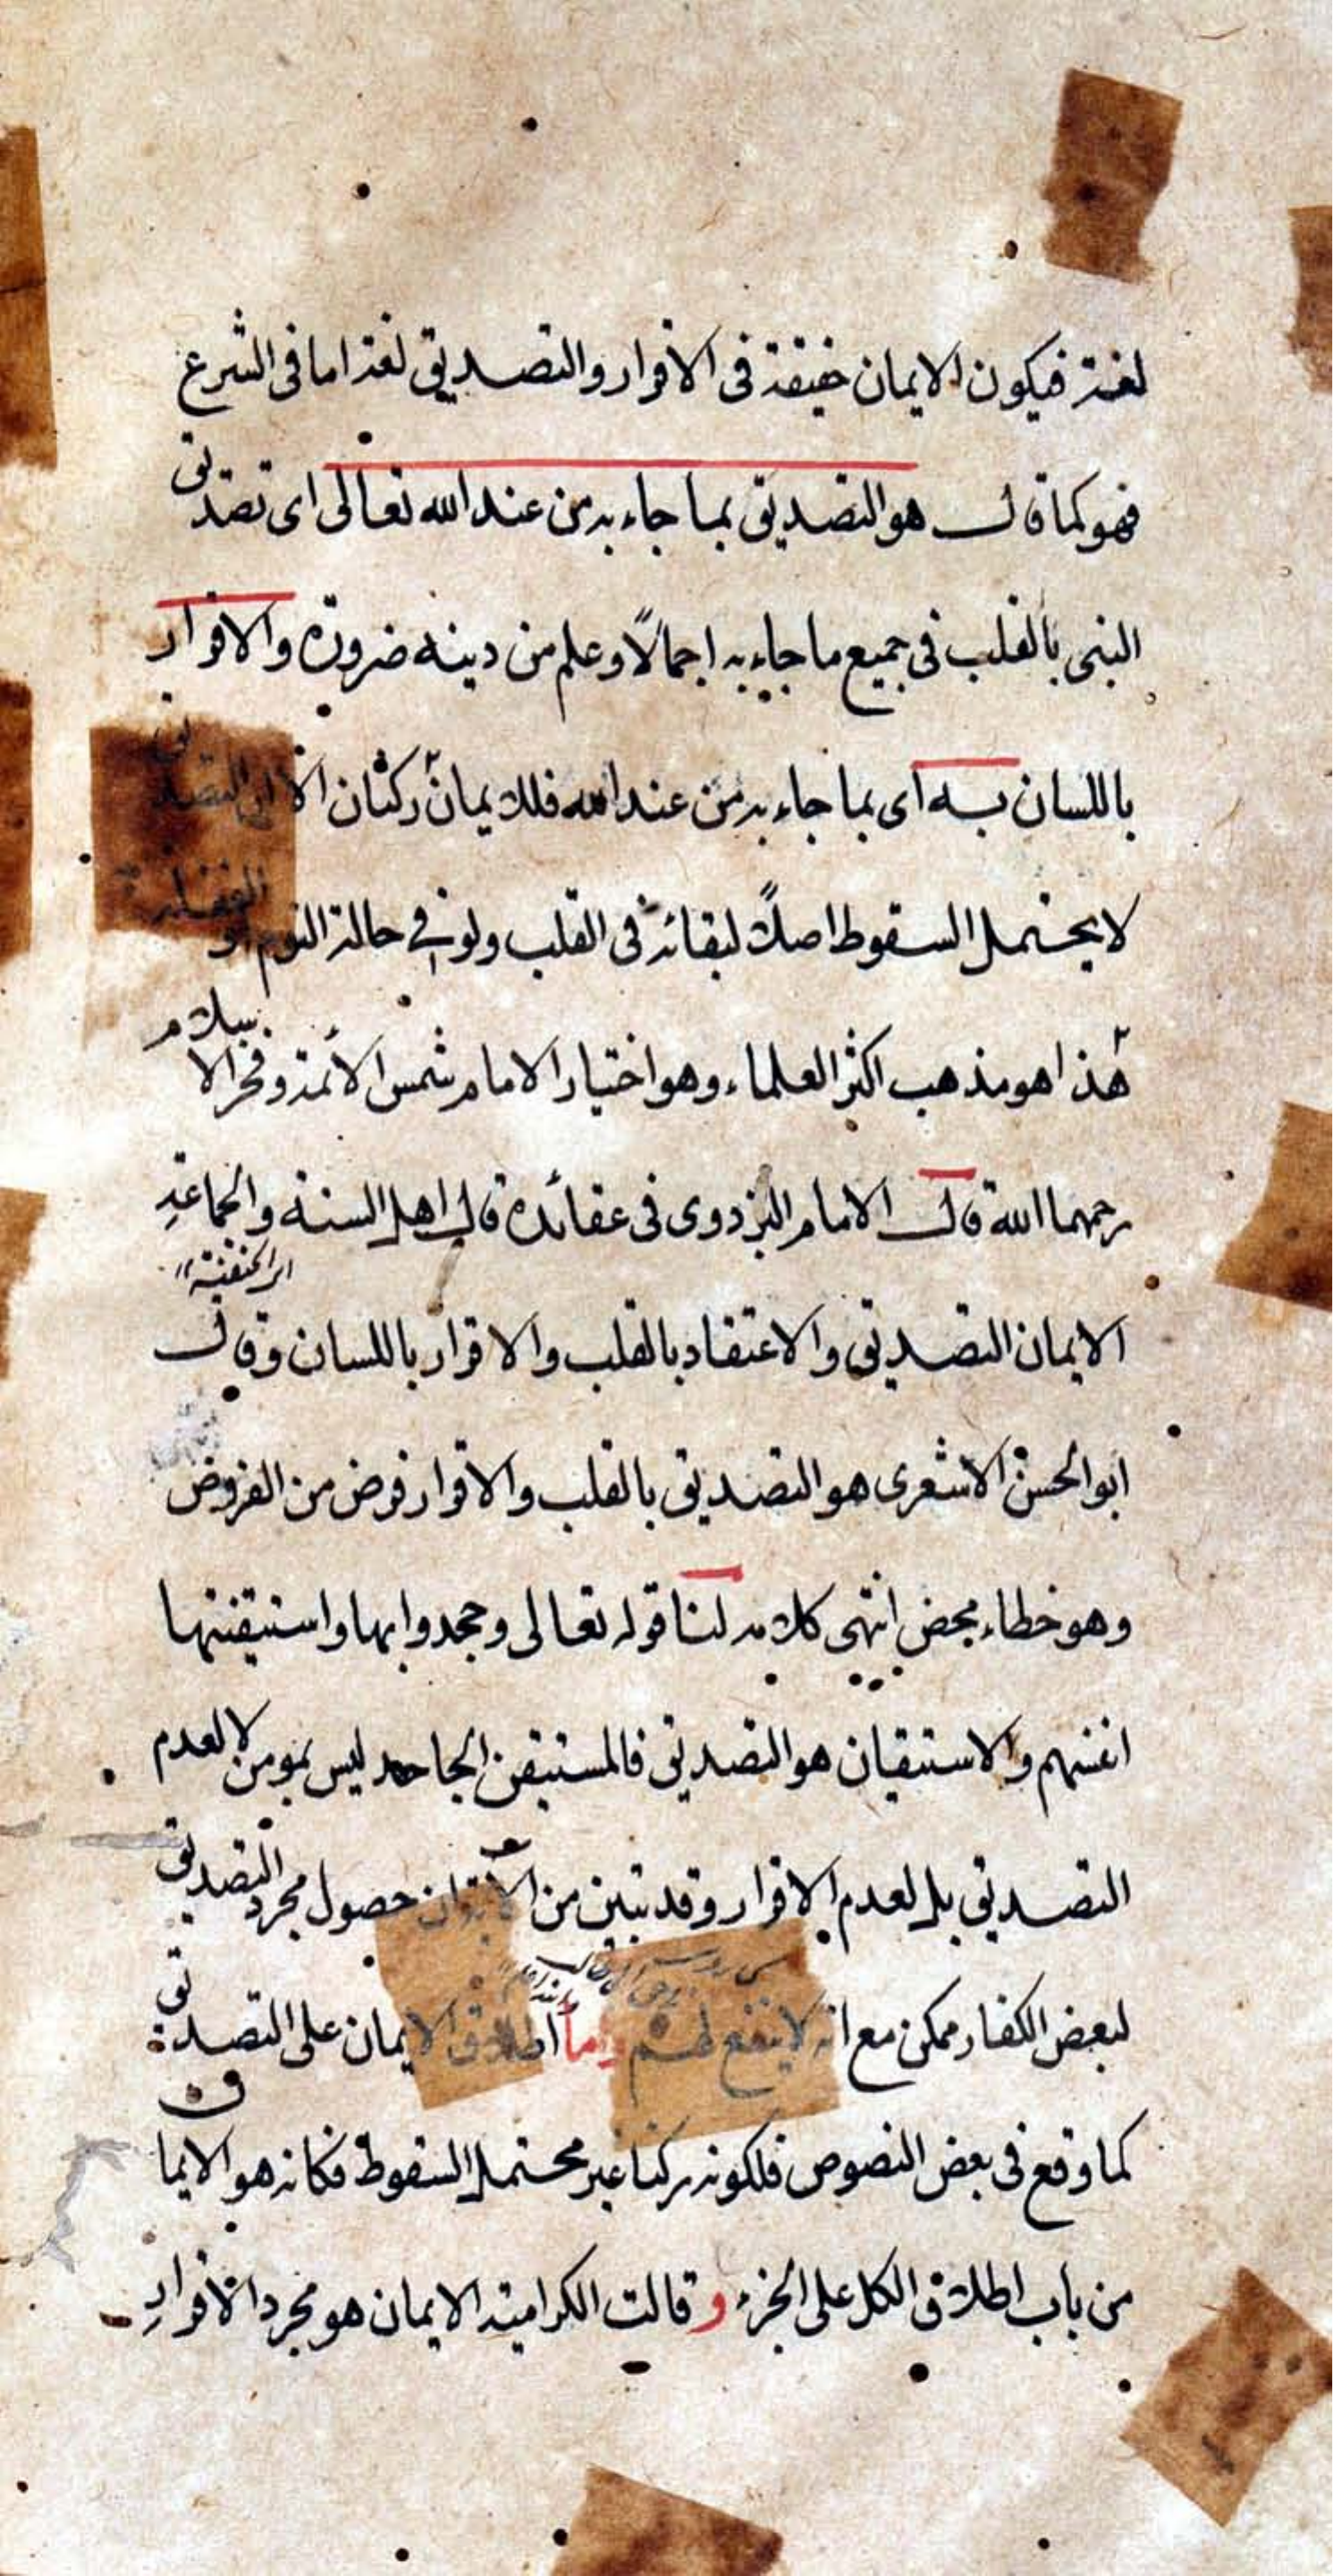 لغة فيكون الايمان حقيقة فى الاقرار والتصديق لغة اما فى الشرع
فهو كما قال هو التصديق بما جاء به من عند الله تعالى اى تصديق
النبى بالقلب فى جميع ما جاء به اجمالًا وعلم من دينه ضرورة والاقرار
باللسان به اى بما جاء به من عند الله فللايمان ركنان الا ان التصديق
لا يحتمل السقوط اصلًا لبقائه فى القلب ولو فى حالة النوم او الغفلة
هذا هو مذهب اكثر العلماء وهو اختيار الامام شمس الائمة وفخر الاسلام
رحمهما الله قال الامام البزدوى فى عقائده قال اهل السنة والجماعة
اى الحنفية
الايمان التصديق والاعتقاد بالقلب والاقرار باللسان وقال
ابو الحسن الاشعرى هو التصديق بالقلب والاقرار فرض من الفروض
وهو خطاء محض انتهى كلامه لنا قوله تعالى وجحدوا بها واستيقنتها
انفسهم والاستيقان هو التصديق فالمستيقن الجاحد ليس بمومن لا لعدم
التصديق بل لعدم الاقرار وقد تبين من حصول مجرد التصديق
لبعض الكفار ممكن مع انه لا ينفع لهم واما اطلاق الايمان على التصديق
كما وقع فى بعض النصوص فلكونه ركنا غير محتمل السقوط فكانه هو الايمان
من باب اطلاق الكل على الجزء وقالت الكرامية الايمان هو مجرد الاقرار